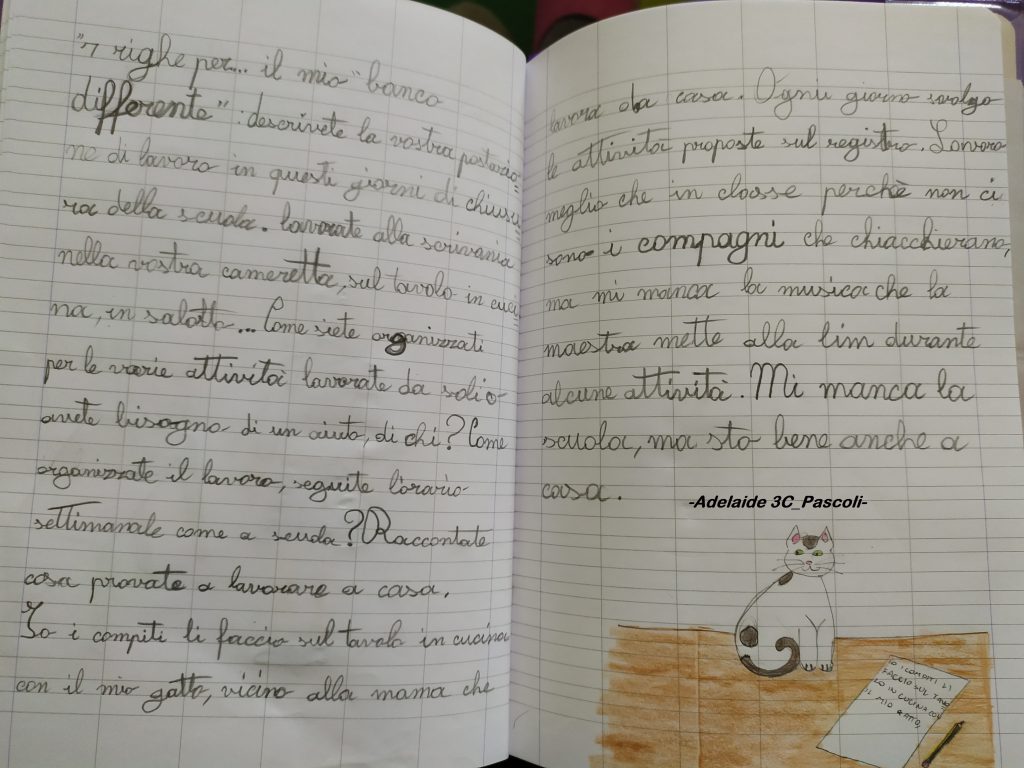 "7 righe per... il mio "banco
differente": descrivete la vostra postazio=
ne di lavoro in questi giorni di chiusu
ra della scuola. lavorate alla scrivania
nella vostra cameretta, sul tavolo in cuci=
na, in salotto... Come siete organizzati
per le varie attività lavorate da soli o
avete bisogno di un aiuto, di chi? Come
organizzate il lavoro, seguite l'orario
settimanale come a scuola? Raccontate
cosa provate a lavorare a casa.
Io i compiti li faccio sul tavolo in cucina
con il mio gatto, vicino alla mama che
lavora da casa. Ogni giorno svolgo
le attività proposte sul registro. Lavoro
meglio che in classe perchè non ci
sono i compagni che chiacchierano,
ma mi manca la musica che la
maestra mette alla lim durante
alcune attività. Mi manca la
scuola, ma sto bene anche a
casa.
-Adelaide 3C_Pascoli-
IO I COMPITI LI
FACCIO SUL TAVO
LO IN CUCINA CON
IL MIO GATTO,